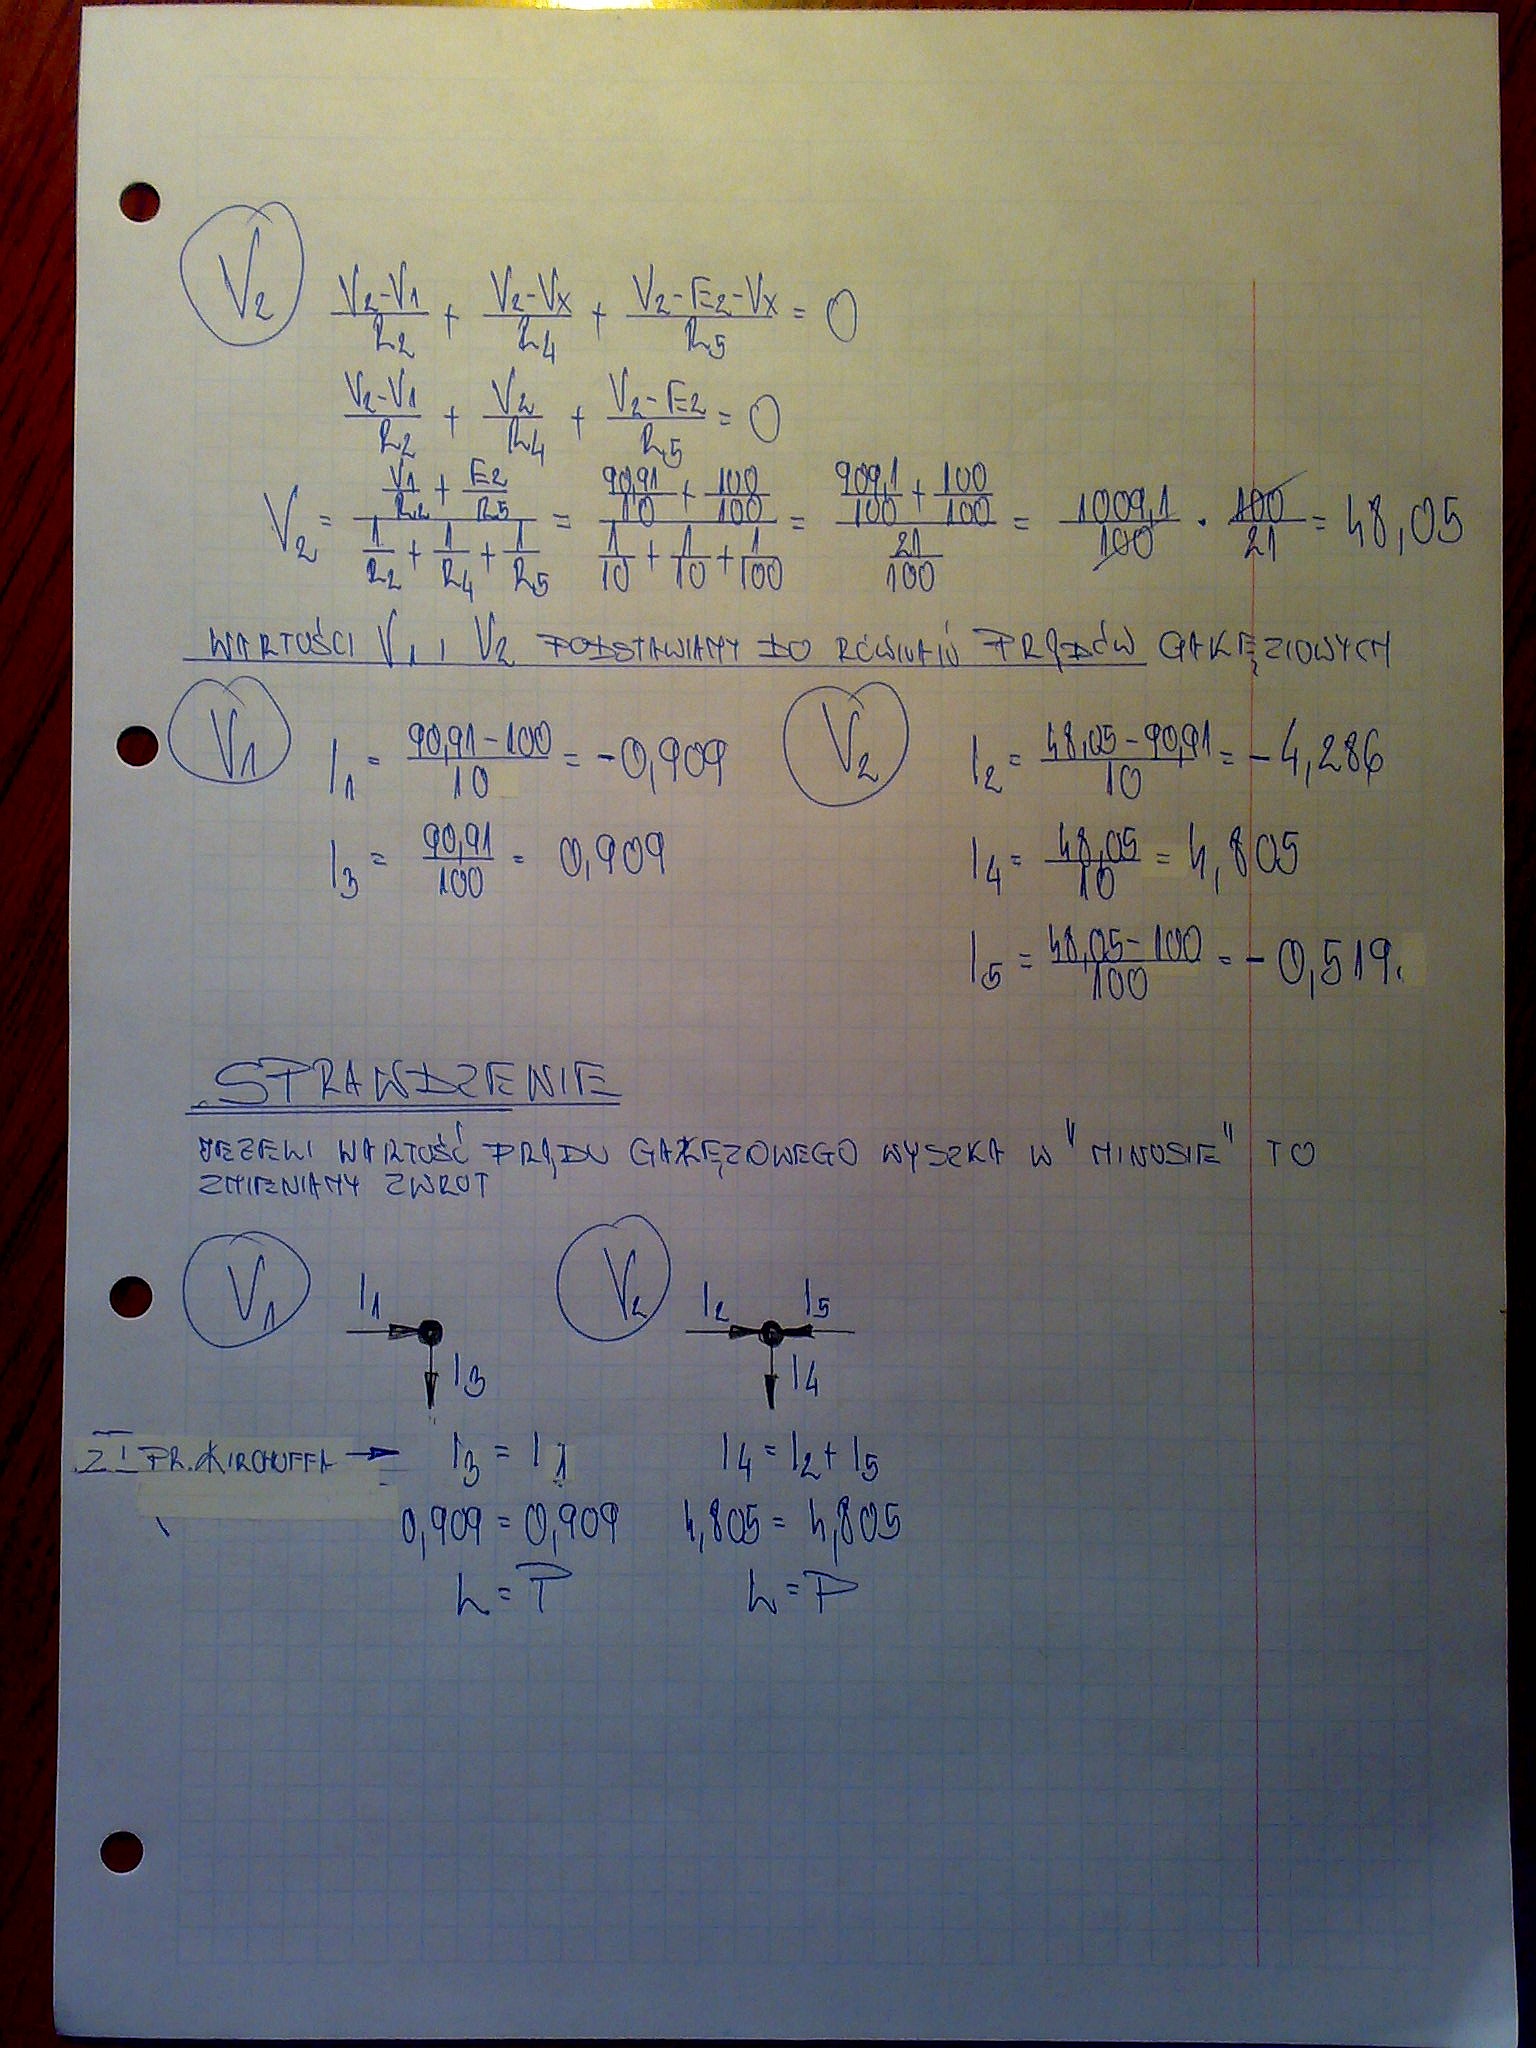 V₂ (V₂-V₁)/R₂ + (V₂-Vx)/R₄ + (V₂-E₂-Vx)/R₅ = 0
(V₂-V₁)/R₂ + V₂/R₄ + (V₂-E₂)/R₅ = 0
V₂ = (V₁/R₂ + E₂/R₅)/(1/R₂ + 1/R₄ + 1/R₅) = (90,91/10 + 100/100)/(1/10 + 1/10 + 1/100) = (909,1/100 + 100/100)/(21/100) = 1009,1/100 · 100/21 = 48,05
WARTOŚCI V₁ I V₂ PODSTAWIAMY DO RÓWNAŃ PRĄDÓW GAŁĘZIOWYCH
V₁ I₁ = (90,91-100)/10 = -0,909 V₂ I₂ = (48,05-90,91)/10 = -4,286
I₃ = 90,91/100 = 0,909 I₄ = 48,05/10 = 4,805
I₅ = (48,05-100)/100 = -0,519.
SPRAWDZENIE
JEZELI WARTOŚĆ PRĄDU GAŁĘZOWEGO WYSZKA W "MINUSIE" TO
ZMIENIAMY ZWROT
V₁ I₁ V₂ I₂ I₅
I₃ I₄
Z I PR. KIRCHUFFA → I₃ = I₁ I₄ = I₂ + I₅
0,909 = 0,909 4,805 = 4,805
L = P L = P